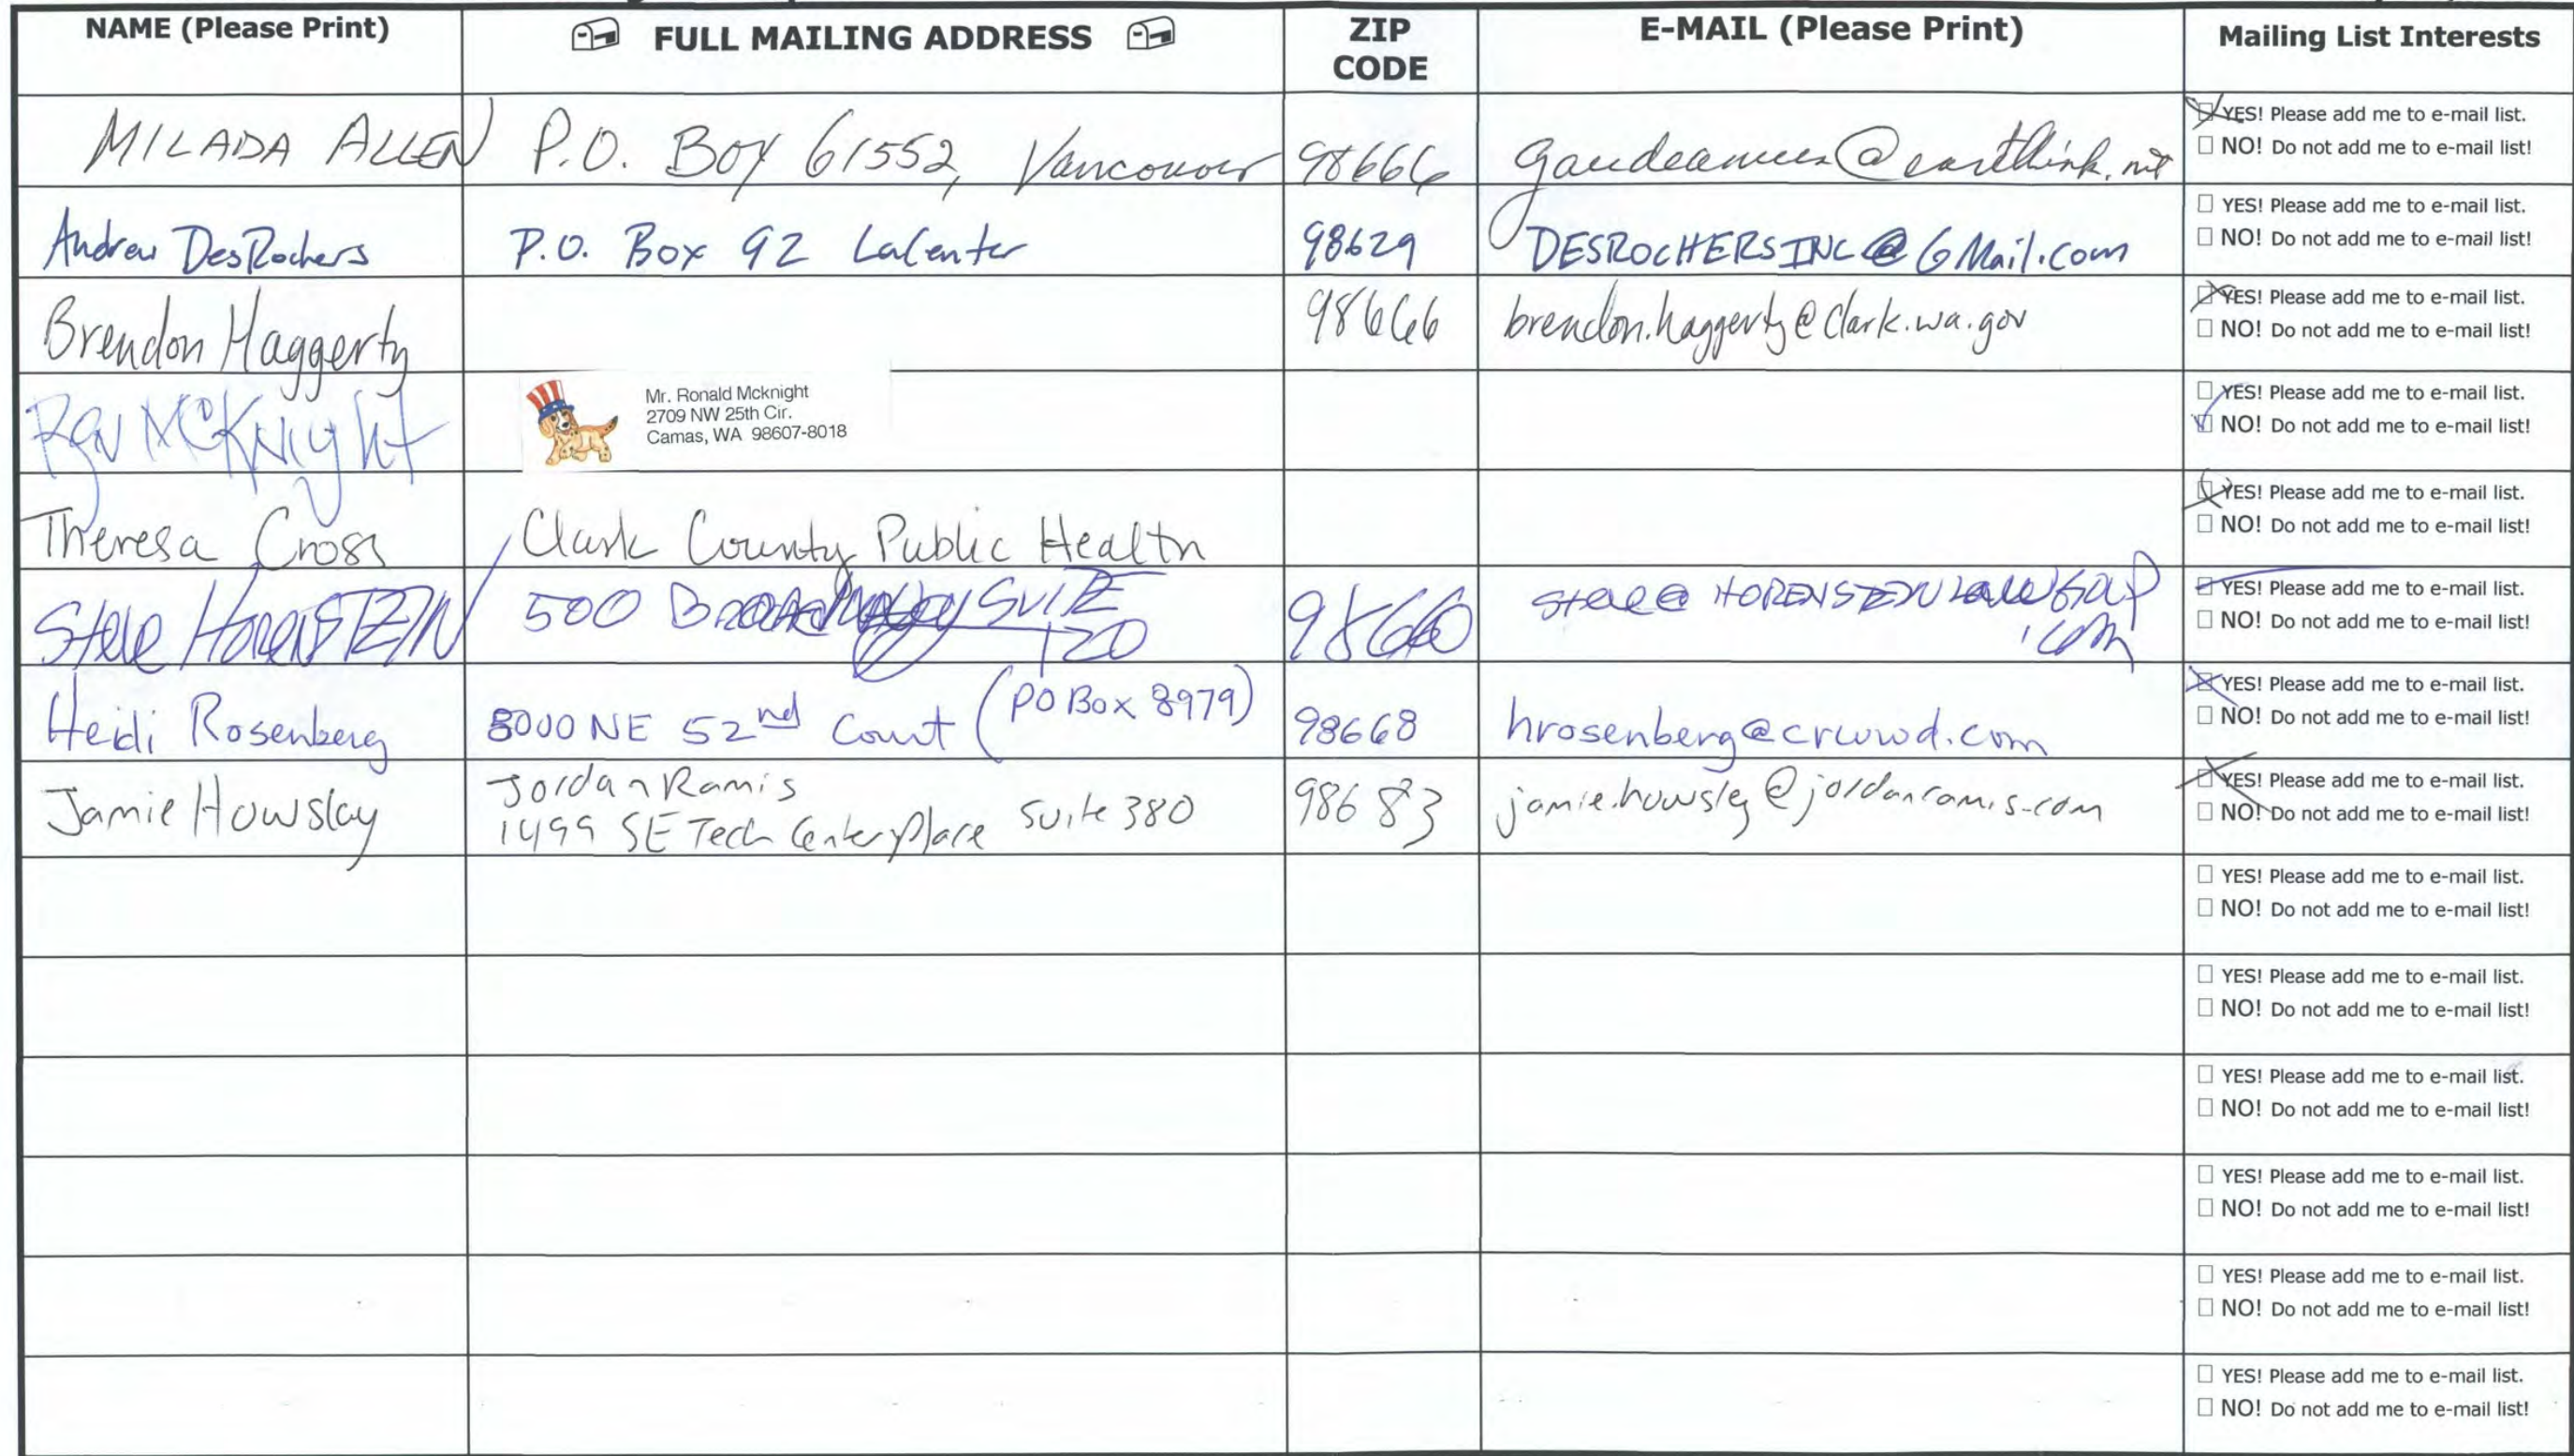 NAME (Please Print) FULL MAILING ADDRESS ZIP CODE E-MAIL (Please Print) Mailing List Interests
MILADA ALLEN P.O. Box 61552, Vancouver 98666 gaudeamus@earthlink.net YES! Please add me to e-mail list.
NO! Do not add me to e-mail list!
Andrew DesRochers P.O. Box 92 LaCenter 98629 DESROCHERSINC@GMail.com YES! Please add me to e-mail list.
NO! Do not add me to e-mail list!
Brendon Haggerty 98666 brendon.haggerty@clark.wa.gov YES! Please add me to e-mail list.
NO! Do not add me to e-mail list!
Ron McKnight Mr. Ronald Mcknight YES! Please add me to e-mail list.
2709 NW 25th Cir.
Camas, WA 98607-8018 NO! Do not add me to e-mail list!
Theresa Cross Clark County Public Health YES! Please add me to e-mail list.
NO! Do not add me to e-mail list!
Steve HORENSTEIN 500 Broadway SUITE 120 98660 steve@HORENSTEINLawGroup YES! Please add me to e-mail list.
.com NO! Do not add me to e-mail list!
Heidi Rosenberg 8000 NE 52nd Court (PO Box 8979) 98668 hrosenberg@crwwd.com YES! Please add me to e-mail list.
NO! Do not add me to e-mail list!
Jamie Howsley Jordan Ramis 98683 jamie.howsley@jordanramis.com YES! Please add me to e-mail list.
1499 SE Tech Center Place Suite 380 NO! Do not add me to e-mail list!
YES! Please add me to e-mail list.
NO! Do not add me to e-mail list!
YES! Please add me to e-mail list.
NO! Do not add me to e-mail list!
YES! Please add me to e-mail list.
NO! Do not add me to e-mail list!
YES! Please add me to e-mail list.
NO! Do not add me to e-mail list!
YES! Please add me to e-mail list.
NO! Do not add me to e-mail list!
YES! Please add me to e-mail list.
NO! Do not add me to e-mail list!